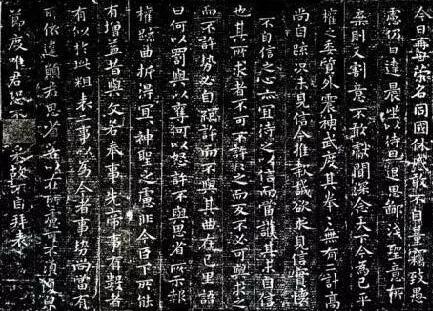 今日再世榮名同國休慼敢不自量竊致愚
慮仍日達晨坐以待旦退思鄙淺聖意所
棄則又割意不敢獻聞深念天下今為已平
權之委質外震神武度其拳拳無有二計高
尚自疏況未見信今推款誠欲求見信實懷
不自信之心亦宜待之以信而當護其未自信
也其所求者不可不許許之而反不必可與求之
而不許勢必自絕許而不與其曲在己里語
曰何以罰與以奪何以怒許不與思省所示報
權疏曲折得宜宜神聖之慮非今臣下所能
有增益昔與文若奉事先帝事有數者
有似於此粗表二事以為今者事勢尚當有
所依違願君思省若以在所慮可不須復貌
節度唯君恐不采故不自拜表